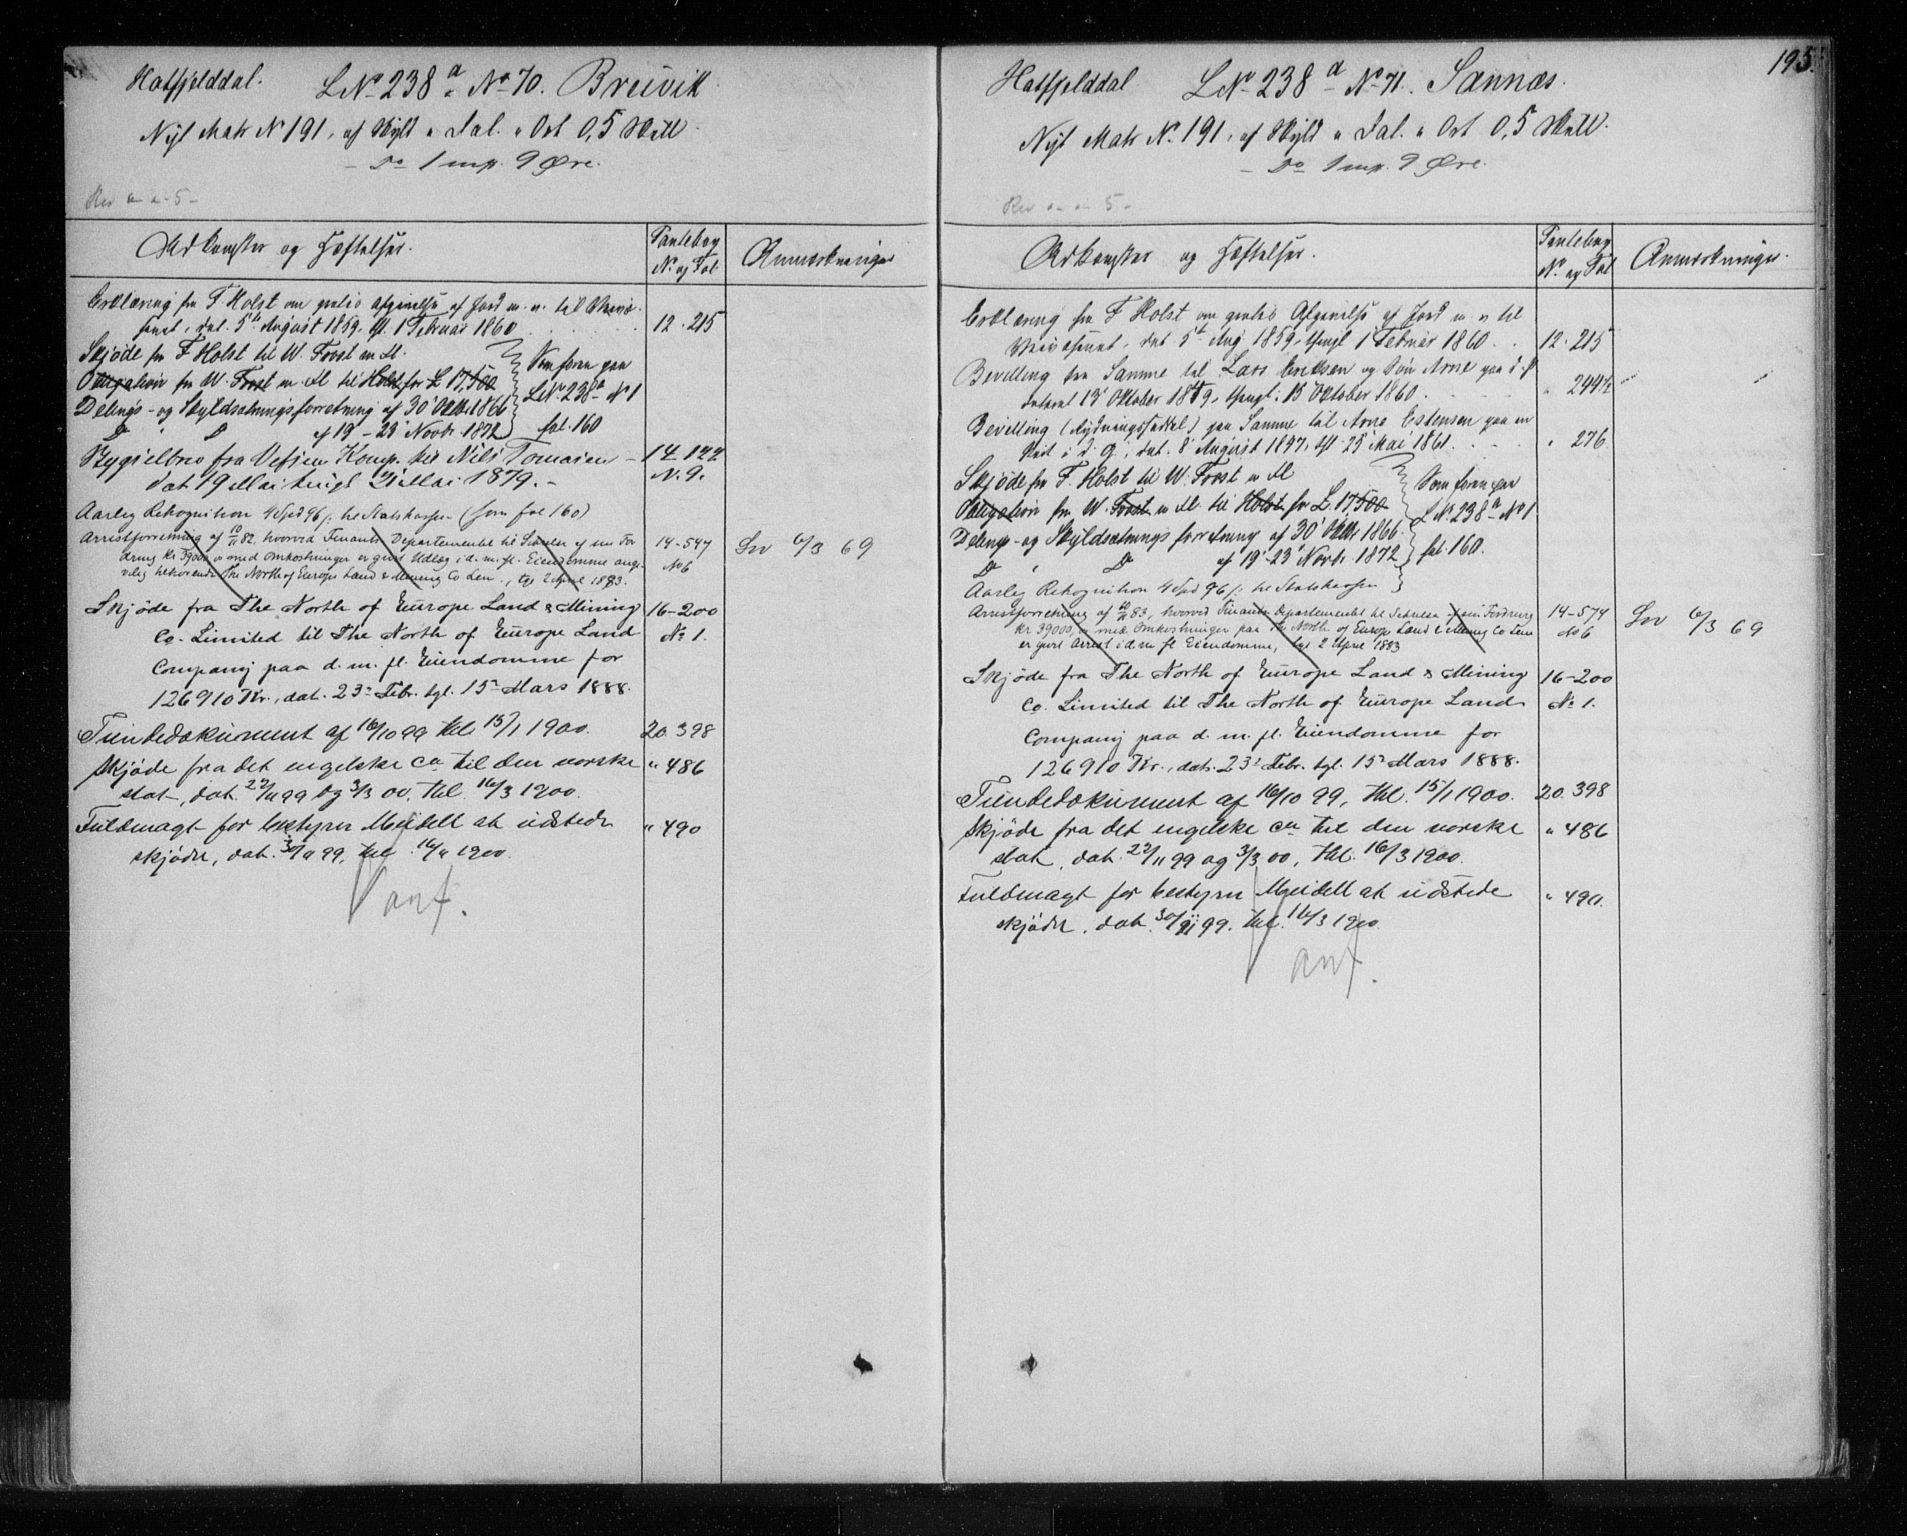 Hatfjelddal. LNo 238 a No 70. Breivik
Nyt Matr N 191, af Skyld " Dal. " Ort 0,5 Skill
- Do 1 mrk. 9 Øre.
Rev " - " - 5 -
Adkomster og Hæftelser.
Pantebog
No. og Fol
Anmærkninger
Erklæring fra F Holst om gratis afgivelse af Jord m. v. til Veivæ-
senet, dat. 5te August 1859, tl. 1 Februar 1860 12. 215
Skjøde fra F Holst til W. Frost m fl.
Obligation fra W. Frost m fl til Holst for £ 17,500
Delings- og Skyldsætningsforretning af 30' Oktbr. 1866
D " D af 19' - 23' Novbr. 1872
Som foran paa
LNo 238 a - No 1
fol. 160
Bygselbrev fra Vefsen Komp. til Nils Tomasen - 14. 122
dat 19 Mai tingl. 21 Mai 1879. - N. 9.
Aarlig Rekognition 4 Spd 96 s. til Statskassen (som fol 160)
Arrestforretning af 10/11 82, hvorved Finants Departementet til Sikkelse af en For
dring Kr. 39000, " med Omkostninger er gjort Udlæg i d. m. fl. Eiendomme ang-
velig tilhørende The North of Europe Land & Mining Co Lim., tgl 2 April 1883.
14-547
No 6
Slv 6/3 69
Skjøde fra The North of Europe Land & Mining 16-200
Co. Limited til The North of Europe Land No 1.
Company paa d. m. fl. Eiendomme for
126910 Kr., dat. 23' Febr. tgl. 15' Mars 1888.
Tiendedokument af 16/10 99 thl. 15/1 1900. 20. 398
Skjøde fra det engelske Co til den norske " 486
stat, dat. 22/11 99 og 3/3 00, thl. 16/3 1900.
Fuldmagt for bestyrer Meidell at udstede " 490
skjøder, dat. 30/11 99, thl. 16/3 1900.
Vanf.
195.
Hatfjelddal LNo 238 a - No 71. Sannæs.
Nyt Matr No. 191, af Skyld " Dal. " Ort 0,5 Skill.
- Do 1 mrk. 9 Øre.
Rev " - " - 5 -
Adkomster og Hæftelser.
Pantebog
No. og Fol
Anmærkninger.
Erklæring fra F Holst om gratis Afgivelse af Jord m. v til
Veivæsenet, dat 5te Aug 1859, thingl 1 Februar 1860. 12. 215
Bevilling fra Samme til Lars Eriksen og Søn Arne paa d. P
dateret 13' Oktober 1849, thingl. 15 Oktober 1860. " 244 1/2
Bevilling (Rydningsseddel) fra Samme til Arne Estensen paa en
Plads i d. G., dat. 8' August 1847, tl 25' Mai 1861. " 276
Skjøde fra F. Holst til W. Frost m fl
Obligation fra W. Frost m fl. til Holst for £. 17,500
Delings- og Skyldsætnings forretning af 30' Oktbr. 1866.
D " D af 19'-23' Novbr. 1872
Som foran paa
LNo. 238 a - No 1
fol. 160.
Aarlig Rekognition 4 Spd 96 s. til Statskassen
Arrestforretning af 10/11 83, hvorved Finants Departementet til Sikkelse af sin Fordring
Kr 39000, " med Omkostninger paa the North of Europe Land & Mining Co Lim
er gjort Arrest i d. m fl Eiendomme, tgl 2 April 1883
14-574
No 6
Slv 6/3 69
Skjøde fra The North of Europe Land & Mining 16-200
Co. Limited til The North of Europe Land No 1.
Company paa d. m. fl. Eiendomme for
126910 Kr., dat. 23' Febr. tgl. 15' Mars 1888.
Tiendedokument af 16/10 99, thl. 15/1 1900. 20. 398
Skjøde fra det engelske Co til den norske " 486
stat, dat. 22/11 99 og 3/3 00, thl. 16/3 1900.
Fuldmagt for bestyrer Meidell at udstede " 490.
skjøder, dat. 30/11 99. thl. 16/3 1900.
Vanf.